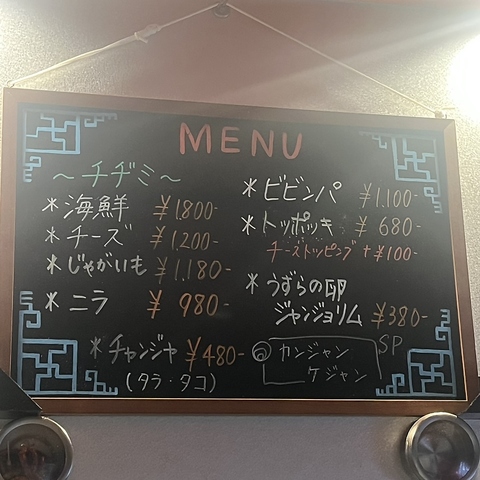 MENU
~チヂミ~
*海鮮 ¥1,800-
*チーズ ¥1,200-
*じゃがいも ¥1,180-
*ニラ ¥980-
*チャンジャ ¥480-
(タラ・タコ)
*ビビンパ ¥1,100-
*トッポッキ ¥680-
チーズトッピング+¥100-
*うずらの卵
ジャンジョリム ¥380-
カンジャン
ケジャン
SP